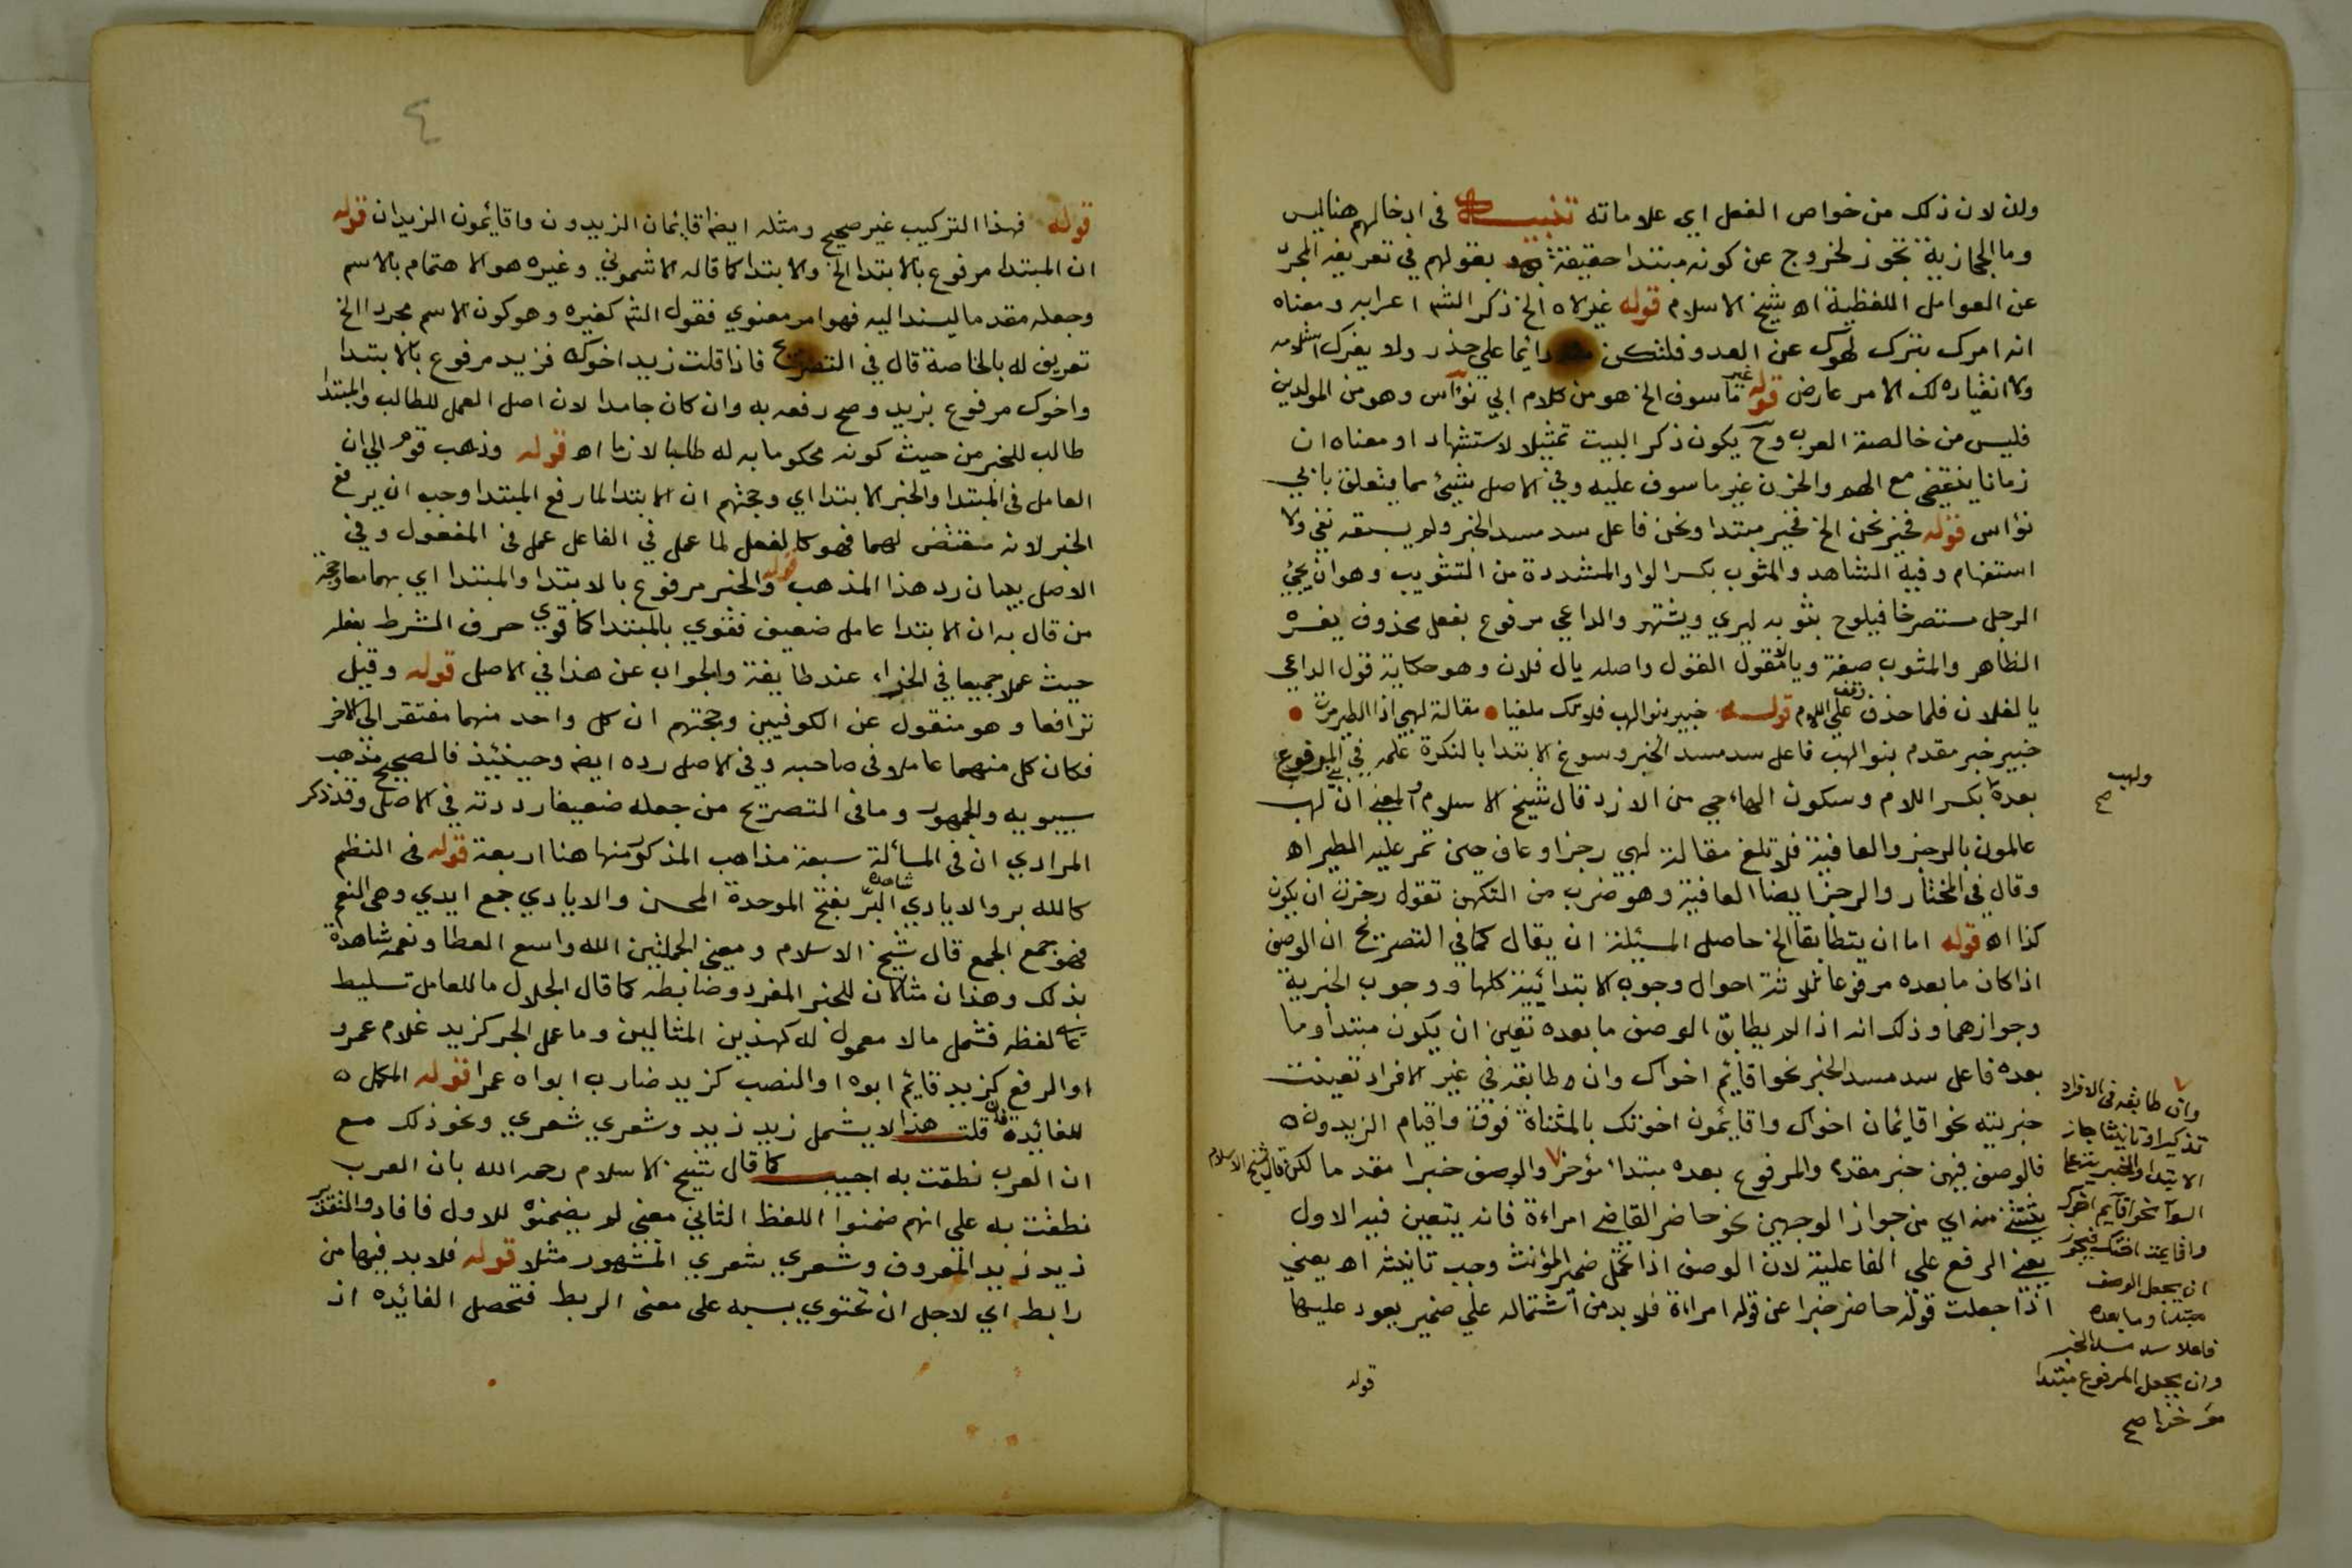 ولن لان ذلك من خواص الفعل اي علاماته تنبيه في ادخالهم هنا ليس
وما الحجازية تجوز لخروج عن كونه مبتدا حقيقة بقولهم في تعريفه المجرد
عن العوامل اللفظية اه شيخ الاسلام قوله غير لاه الخ ذكر الشم اعرابه ومعناه
انه امرك بترك لهوك عن العدو فلتكن دائما علي حذر ولا يغرك
ولا انقياده لك لامر عارض قوله غير ماسوف الخ هو من كلام ابي نؤاس وهو من المولدين
فليس من خالصة العرب وح يكون ذكر البيت تمثيلا لاستشهاد او معناه ان
زمانا ينقضي مع الهم والحزن غير ماسوف عليه وفي الاصل شيئ مما يتعلق بابي
نؤاس قوله فخير نحن الخ فخير مبتدا ونحن فاعل سد مسد الخبر ولم يسبقه نفي ولا
استفهام وفيه الشاهد والمثوب بكسر الواو المشددة من التثويب وهو ان يجيئ
الرجل مستصرخا فيلوح بثوبه ليري ويشتهر والداعي مرفوع بفعل محذوف يفسره
الظاهر والمثوب صفة ويالا مقول القول واصله يال فلان وهو حكاية قول الداعي
يا لفلان فلما حذف وقف علي اللام قوله خبير بنو لهب فلا تك ملغيا • مقالة لهبي اذا الطير مرت •
خبير خبر مقدم بنو الهب فاعل سد مسد الخبر وسوغ الابتدا بالنكرة عمله في المرفوع
بعده بكسر اللام وسكون الهاء حي من الازد قال شيخ الاسلام والمعني ان بني لهب
عالمون بالرجز والعافية فلا تلغ مقالة لهبي رجز او عاف حين تمر عليه الطير اه
وقال في المختار والرجز ايضا العافية وهو ضرب من التكهن تقول رجزت ان يكون
كذا اه قوله اما ان يتطابقا الخ حاصل المسئلة ان يقال كما في التصريح ان الوصف
اذا كان ما بعده مرفوعا ثلاثة احوال وجوب الابتدائية كلها ووجوب الخبرية
وجوازهما وذلك انه اذا لم يطابق الوصف ما بعده تعين ان يكون مبتدأ وما
بعده فاعل سد مسد الخبر نحو اقايم اخواك وان طابقه في غير الافراد تعينت
خبريته نحو اقايمان اخواك واقايمون اخوتك بالمثناة فوق واقيام الزيدون
فالوصف فيهن خبر مقدم والمرفوع بعده مبتدا مؤخر والوصف خبرا مقدما لكن قال شيخ الاسلام
يستثني منه اي من جواز الوجهين نحو حاضر القاضي امراءة فانه يتعين فيه الاول
يعني الرفع علي الفاعلية لان الوصف اذا تحمل ضمير المؤنث وجب تانيثه اه يعني
اذا جعلت قوله حاضر خبرا عن قوله امراءة فلا بد من اشتماله علي ضمير يعود عليها
قوله
ولهب
صح
وان طابقه في الافراد
تذكيرا وتانيثا جاز
الابتدا والخبريه علي
السوآ نحو اقايم اخوك
واقايمة اختك فيجوز
ان يجعل الوصف
مبتدا وما بعده
فاعلا سد مسد الخبر
وان يجعل المرفوع مبتدا
مؤخرا صح
٤
قوله فهذا التركيب غير صحيح ومثله ايضا قايمان الزيدون واقايمون الزيدان قوله
ان المبتدا مرفوع بالابتدا الخ والابتدا كما قاله الاشموني وغيره هو الاهتمام بالاسم
وجعله مقدما ليسند اليه فهو امر معنوي فقول الشم كغيره وهو كون الاسم مجردا الخ
تعريف له بالخاصة قال في التصريح فاذا قلت زيد اخوك فزيد مرفوع بالابتدا
واخوك مرفوع بزيد وصح رفعه به وان كان جامدا لان اصل العمل للطالب والمبتدا
طالب للخبر من حيث كونه محكوما به له طلبا لازما اه قوله وذهب قوم الي ان
العامل في المبتدا والخبر الابتدا اي وحجتهم ان الابتدا لما رفع المبتدا وجب ان يرفع
الخبر لانه مقتضٍ لهما فهو كالفعل لما عمل في الفاعل عمل في المفعول وفي
الاصل بيان رد هذا المذهب قوله والخبر مرفوع بالابتدا والمبتدا اي بهما معا وحجة
من قال به ان الابتدا عامل ضعيف فقوي بالمبتدا كما قوي حرف الشرط بفعله
حيث عملا جميعا في الجزاء عند طايفة والجواب عن هذا في الاصل قوله وقيل
ترافعا وهو منقول عن الكوفيين وحجتهم ان كل واحد منهما مفتقر الي الاخر
فكان كل منهما عاملا في صاحبه وفي الاصل رده ايضا وحينئيذ فالصحيح مذهب
سيبويه والجمهور وما في التصريح من جعله ضعيفا رددته في الاصل وقد ذكر
المرادي ان في المسألة سبعة مذاهب المذكور منها هنا اربعة قوله في النظم
كالله بر والايادي شاهده البر بفتح الموحدة المحسن والايادي جمع ايدي وهي النعم
فهو جمع الجمع قال شيخ الاسلام ومعني الجملتين الله واسع العطا ونعمه شاهدة
بذلك وهذان مثالان للخبر المفرد وضابطه كما قال الجلال ما للعامل تسليط
علي لفظه فشمل ما لا معمول له كهذين المثالين وما عمل الجر كزيد غلام عمرو
او الرفع كزيد قايم ابوه او النصب كزيد ضارب ابواه عمرا قوله المكمل
للفائدة فان قلت هذا لا يشمل زيد زيد وشعري شعري ونحو ذلك مع
ان العرب نطقت به اجيب كما قال شيخ الاسلام رحمه الله بان العرب
نطقت به علي انهم ضمنوا اللفظ الثاني معني لم يضمنوه للاول فافاد والتقدير
زيد زيد المعروف وشعري شعري المشهور مثلا قوله فلا بد فيها من
رابط اي لاجل ان تحتوي بسببه علي معني الربط فتحصل الفائيده اذ